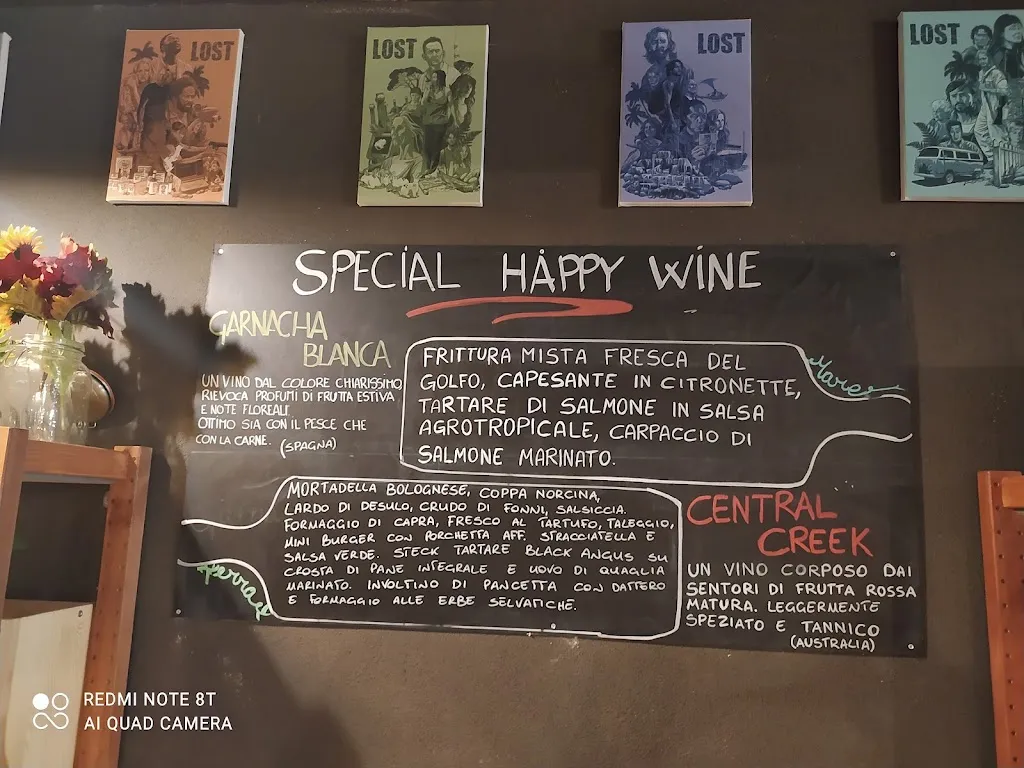 LOST
LOST
LOST
LOST
SPECIAL HAPPY WINE
GARNACHA
BLANCA
UN VINO DAL COLORE CHIARISSIMO
RIEVOCA PROFUMI DI FRUTTA ESTIVA
E NOTE FLOREALI
OTTIMO SIA CON IL PESCE CHE
CON LA CARNE. (SPAGNA)
FRITTURA MISTA FRESCA DEL
GOLFO, CAPESANTE IN CITRONETTE,
TARTARE DI SALMONE IN SALSA
AGROTROPICALE, CARPACCIO DI
SALMONE MARINATO.
Mare
MORTADELLA BOLOGNESE, COPPA NORCINA,
LARDO DI DESULO, CRUDO DI FONNI, SALSICCIA.
FORMAGGIO DI CAPRA, FRESCO AL TARTUFO, TALEGGIO,
MINI BURGER CON PORCHETTA AFF. STRACCIATELLA E
SALSA VERDE. STECK TARTARE BLACK ANGUS SU
CROSTA DI PANE INTEGRALE E UOVO DI QUAGLIA
MARINATO. INVOLTINO DI PANCETTA CON DATTERO
E FORMAGGIO ALLE ERBE SELVATICHE.
Terra
CENTRAL
CREEK
UN VINO CORPOSO DAI
SENTORI DI FRUTTA ROSSA
MATURA. LEGGERMENTE
SPEZIATO E TANNICO
(AUSTRALIA)
REDMI NOTE 8T
AI QUAD CAMERA